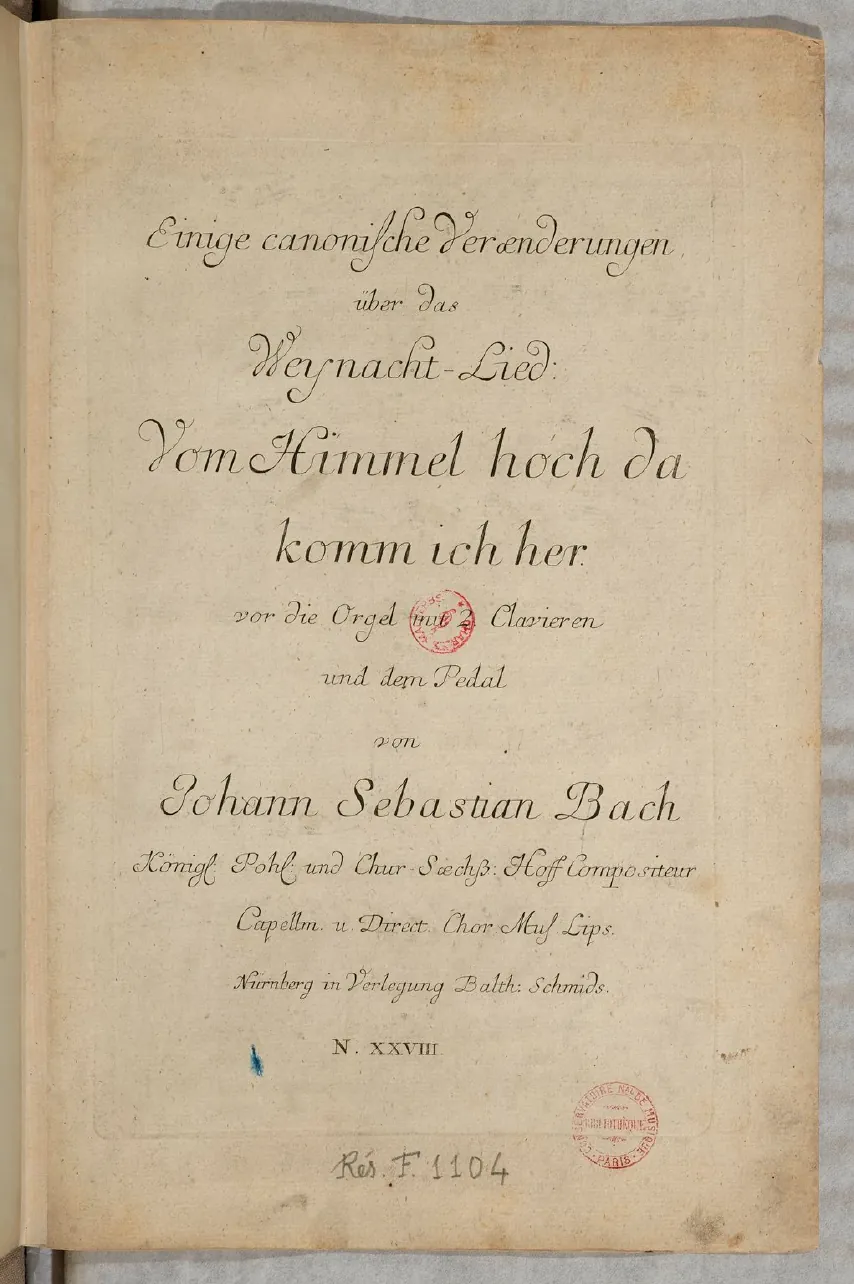 Einige canonische Verænderungen,
über das
Weynacht-Lied:
Vom Himmel hoch da
komm ich her.
vor die Orgel mit 2. Clavieren
und dem Pedal
von
Johann Sebastian Bach
Königl: Pohl: und Chur-Sæchß: Hoff Compositeur
Capellm. u. Direct. Chor. Mus. Lips.
Nürnberg in Verlegung Balth: Schmids.
N. XXVIII.
CONSERVATOIRE NAL DE MUSIQUE
BIBLIOTHÈQUE
PARIS
Rés. F. 1104